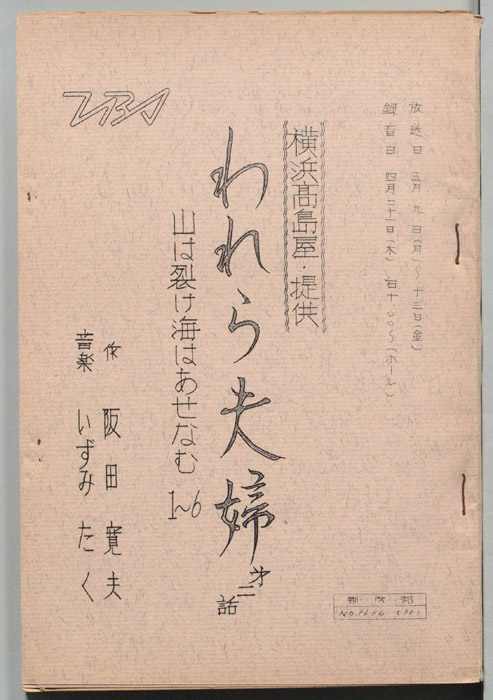 放送日 五月九日(月)〜十三日(金)
録音日 四月二十一日(木) 后十.〇〇〜(ホール)
横浜髙島屋・提供
TBS
われら夫婦 第二話
山は裂け海はあせなむ 1〜6
作 阪田寛夫
音楽 いずみたく